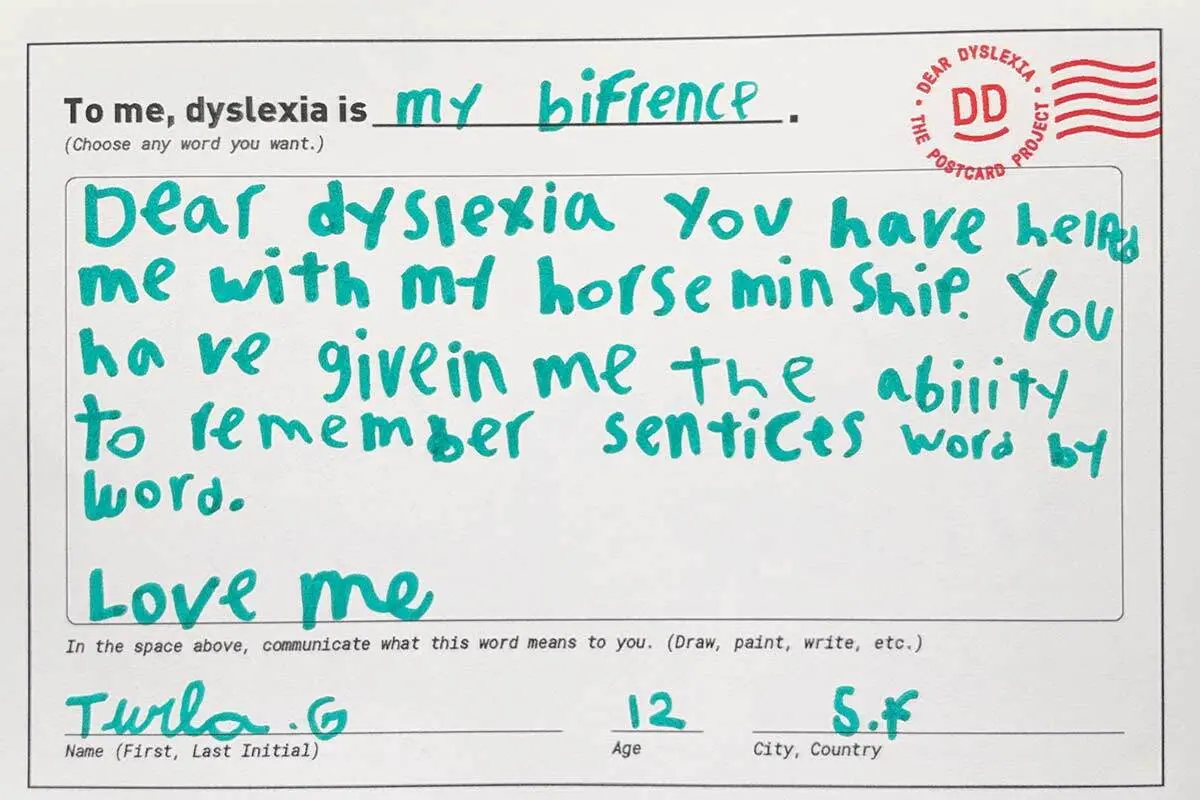 To me, dyslexia is my bifrence.
(Choose any word you want.)
DEAR DYSLEXIA · THE POSTCARD PROJECT ·
DD
Dear dyslexia You have helped
me with my horse min ship. You
ha ve givein me the ability
to remember sentices word by
word.
Love me
In the space above, communicate what this word means to you. (Draw, paint, write, etc.)
Twila.G 12 S.F
Name (First, Last Initial) Age City, Country